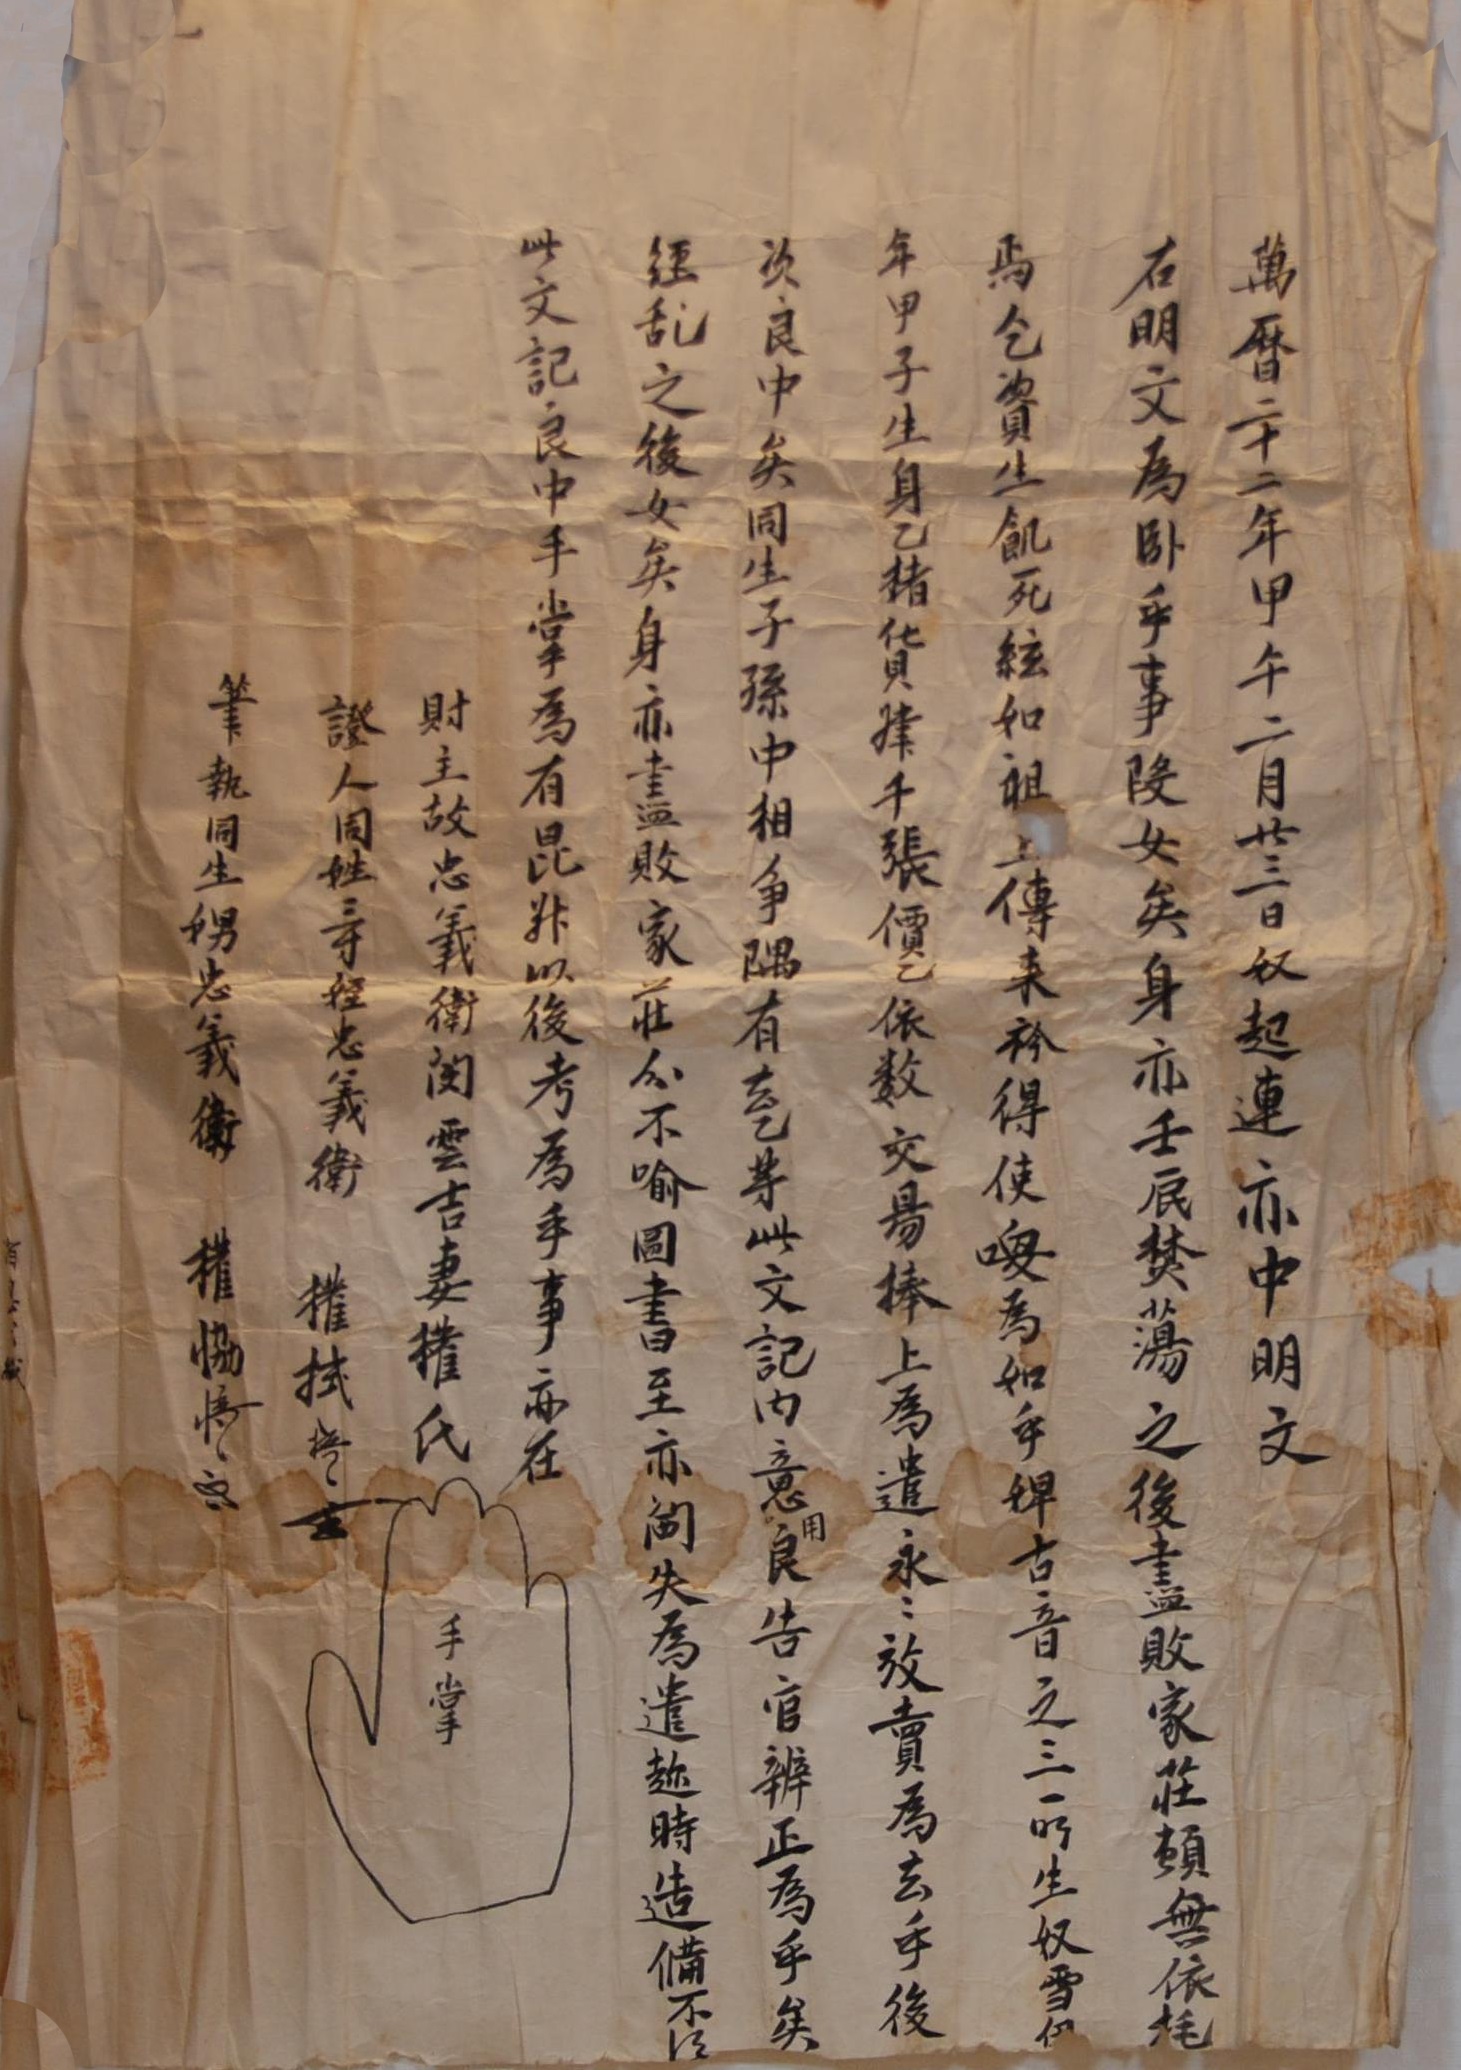 萬曆二十二年甲午二月廿三日奴起連亦中明文
右明文爲臥乎事段女矣身亦壬辰焚蕩之後盡敗家莊頓無依
乞資生飢死絃如祖上傳來衿得使喚爲如乎婢古音之三所生奴雪
年甲子生身乙楮貨肆千張價乙依數交易捧上爲遣永〻放賣爲去乎後
次良中矣同生子孫中相爭隅有去乙等此文記內意用良告官辨正爲乎矣
經乱之後女矣身亦盡敗家莊叱分不喻圖書至亦閪失爲遣趂時造備不
此文記良中手掌爲有昆以後考爲乎事亦在
財主故忠義衛閔雲吉妻權氏
手掌
證人同姓三寸姪忠義衛 權拭
筆執同生娚忠義衛 權恊